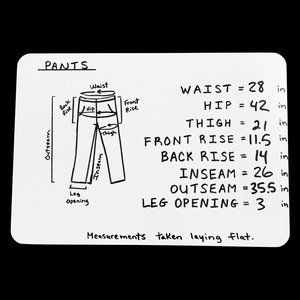 PANTS
Waist
Back Rise
Hip
Front Rise
Thigh
Outseam
Inseam
Leg Opening
WAIST = 28 in
HIP = 42 in
THIGH = 21 in
FRONT RISE = 11.5 in
BACK RISE = 14 in
INSEAM = 26 in
OUTSEAM = 35.5 in
LEG OPENING = 3 in
Measurements taken laying flat.